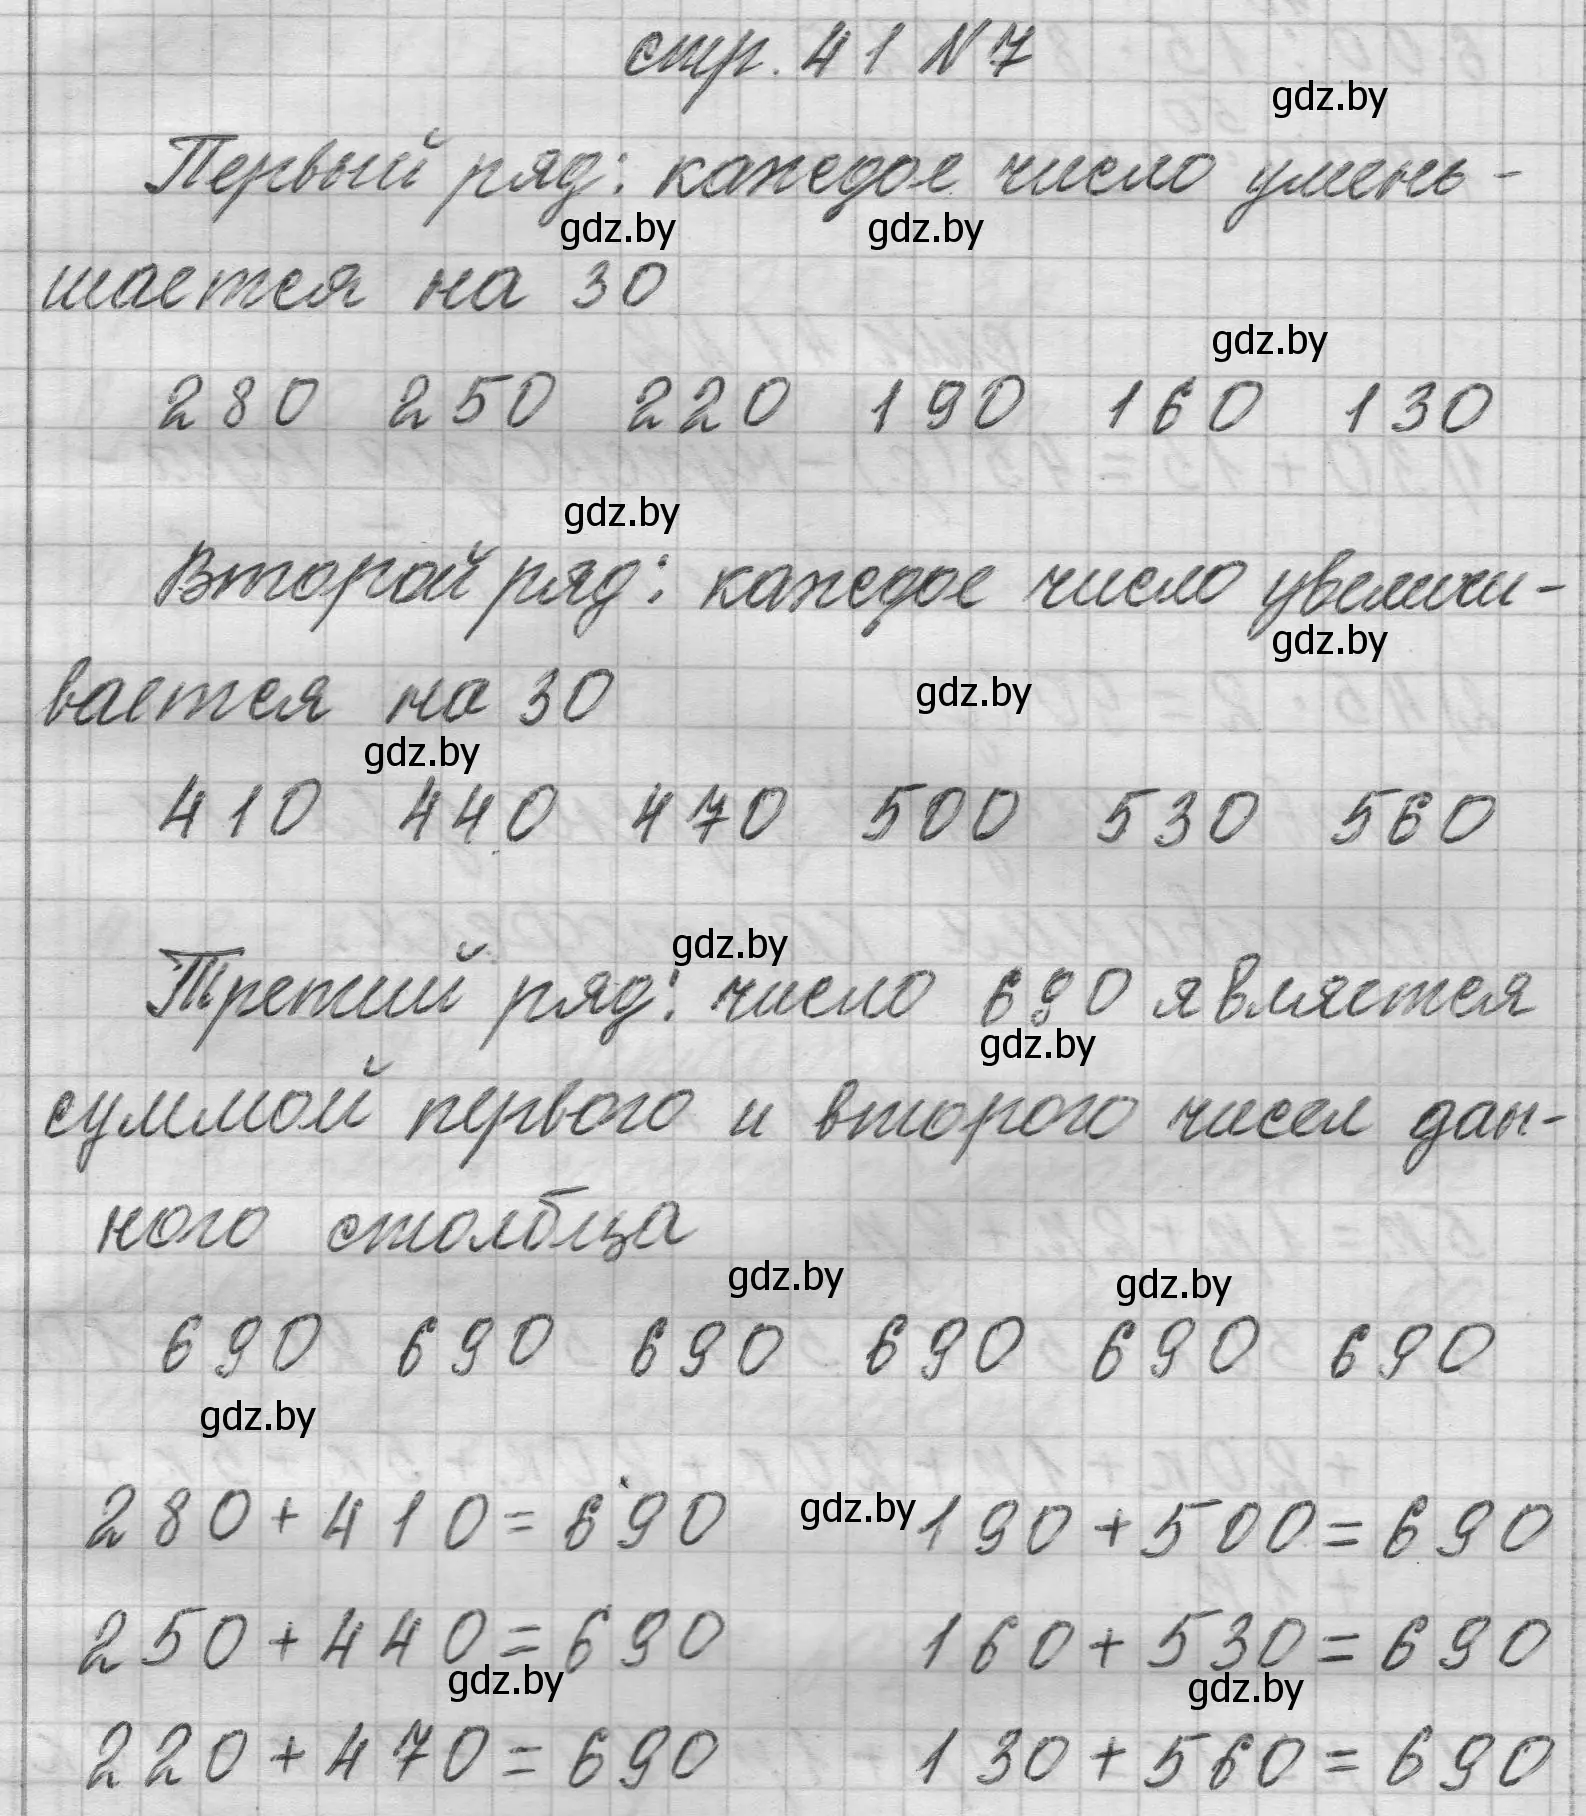 стр. 41 N 7
gdz.by
Первый ряд: каждое число умень-
gdz.by gdz.by
шается на 30
gdz.by
280 250 220 190 160 130
gdz.by
Второй ряд: каждое число увеличи-
gdz.by
вается на 30
gdz.by
gdz.by
410 440 470 500 530 560
gdz.by
Третий ряд: число 690 является
gdz.by
суммой первого и второго чисел дан-
ного столбца
gdz.by gdz.by
690 690 690 690 690 690
gdz.by
280 + 410 = 690 gdz.by 190 + 500 = 690
250 + 440 = 690 160 + 530 = 690
gdz.by gdz.by
220 + 470 = 690 130 + 560 = 690